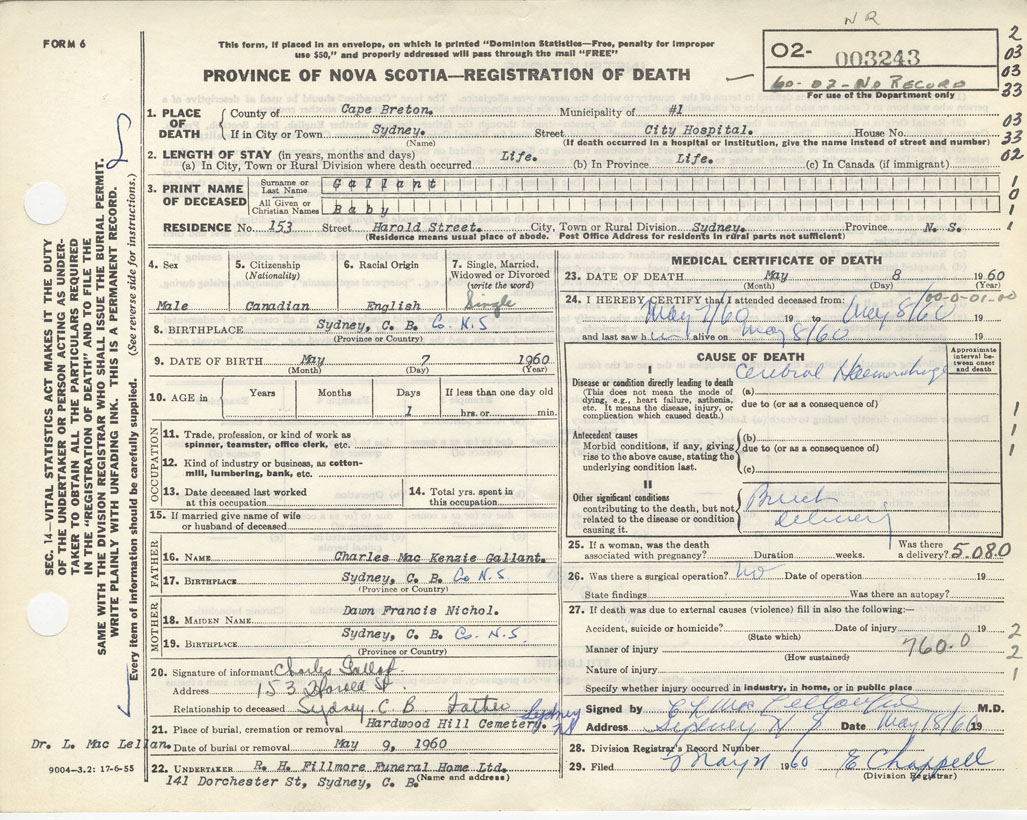 NR
FORM 6
This form, if placed in an envelope, on which is printed "Dominion Statistics—Free, penalty for improper
use $50," and properly addressed will pass through the mail "FREE"
PROVINCE OF NOVA SCOTIA—REGISTRATION OF DEATH
02- 003243
60-02-No RECORD
For use of the Department only
2
03
03
33
03
33
02
1
0
1
1
1. PLACE OF DEATH
County of Cape Breton. Municipality of #1
If in City or Town Sydney. Street City Hospital. House No.
(Name) (If death occurred in a hospital or institution, give the name instead of street and number)
2. LENGTH OF STAY (in years, months and days)
(a) In City, Town or Rural Division where death occurred Life. (b) In Province Life. (c) In Canada (if immigrant)
3. PRINT NAME OF DECEASED
Surname or Last Name Gallant
All Given or Christian Names Baby
RESIDENCE No. 153 Street Harold Street. City, Town or Rural Division Sydney. Province N. S.
(Residence means usual place of abode. Post Office Address for residents in rural parts not sufficient)
4. Sex Male
5. Citizenship (Nationality) Canadian
6. Racial Origin English
7. Single, Married, Widowed or Divorced (write the word) Single
8. BIRTHPLACE Sydney, C. B. Co. N.S
(Province or Country)
9. DATE OF BIRTH May 7 1960
(Month) (Day) (Year)
10. AGE in Years Months Days 1 If less than one day old hrs. or min.
OCCUPATION
11. Trade, profession, or kind of work as spinner, teamster, office clerk, etc.
12. Kind of industry or business, as cotton-mill, lumbering, bank, etc.
13. Date deceased last worked at this occupation
14. Total yrs. spent in this occupation
15. If married give name of wife or husband of deceased
FATHER
16. NAME Charles Mac Kenzie Gallant.
17. BIRTHPLACE Sydney, C. B. Co N.S
(Province or Country)
MOTHER
18. MAIDEN NAME Dawn Francis Nichol.
19. BIRTHPLACE Sydney, C. B Co. N.S.
(Province or Country)
20. Signature of informant Charles
Address 153 Harold St.
Sydney C B
Relationship to deceased Father
21. Place of burial, cremation or removal Hardwood Hill Cemetery. Sydney NS
Dr. L. Mac Lellan.
Date of burial or removal May 9, 1960
22. UNDERTAKER R. H. Fillmore Funeral Home Ltd.
141 Dorchester St, Sydney, C. B. (Name and address)
9004—3.2: 17-6-55
MEDICAL CERTIFICATE OF DEATH
23. DATE OF DEATH May 8 1960
(Month) (Day) (Year)
00-0-01-00
24. I HEREBY CERTIFY that I attended deceased from:
May 7/60 19 to May 8/60 19
and last saw him alive on May 8/60 19
CAUSE OF DEATH
Approximate interval between onset and death
I
Disease or condition directly leading to death
(This does not mean the mode of dying, e.g., heart failure, asthenia, etc. It means the disease, injury, or complication which caused death.)
(a) Cerebral Haemorrhage
due to (or as a consequence of)
Antecedent causes
Morbid conditions, if any, giving rise to the above cause, stating the underlying condition last.
(b)
due to (or as a consequence of)
(c)
II
Other significant conditions
contributing to the death, but not related to the disease or condition causing it.
Breech
delivery
1
1
1
25. If a woman, was the death associated with pregnancy? Duration weeks. Was there a delivery? 5.080
26. Was there a surgical operation? no Date of operation 19
State findings Was there an autopsy?
27. If death was due to external causes (violence) fill in also the following:—
Accident, suicide or homicide? Date of injury 19
(State which)
Manner of injury 760.0
(How sustained)
Nature of injury
Specify whether injury occurred in industry, in home, or in public place
2
2
1
Signed by M.D.
Address Sydney N S Date May 8/60 19
28. Division Registrar's Record Number
29. Filed May 1960 E Chappell
(Division Registrar)
SEC. 14—VITAL STATISTICS ACT MAKES IT THE DUTY
OF THE UNDERTAKER OR PERSON ACTING AS UNDER-
TAKER TO OBTAIN ALL THE PARTICULARS REQUIRED
IN THE "REGISTRATION OF DEATH" AND TO FILE THE
SAME WITH THE DIVISION REGISTRAR WHO SHALL ISSUE THE BURIAL PERMIT.
WRITE PLAINLY WITH UNFADING INK. THIS IS A PERMANENT RECORD.
Every item of information should be carefully supplied. (See reverse side for instructions.)